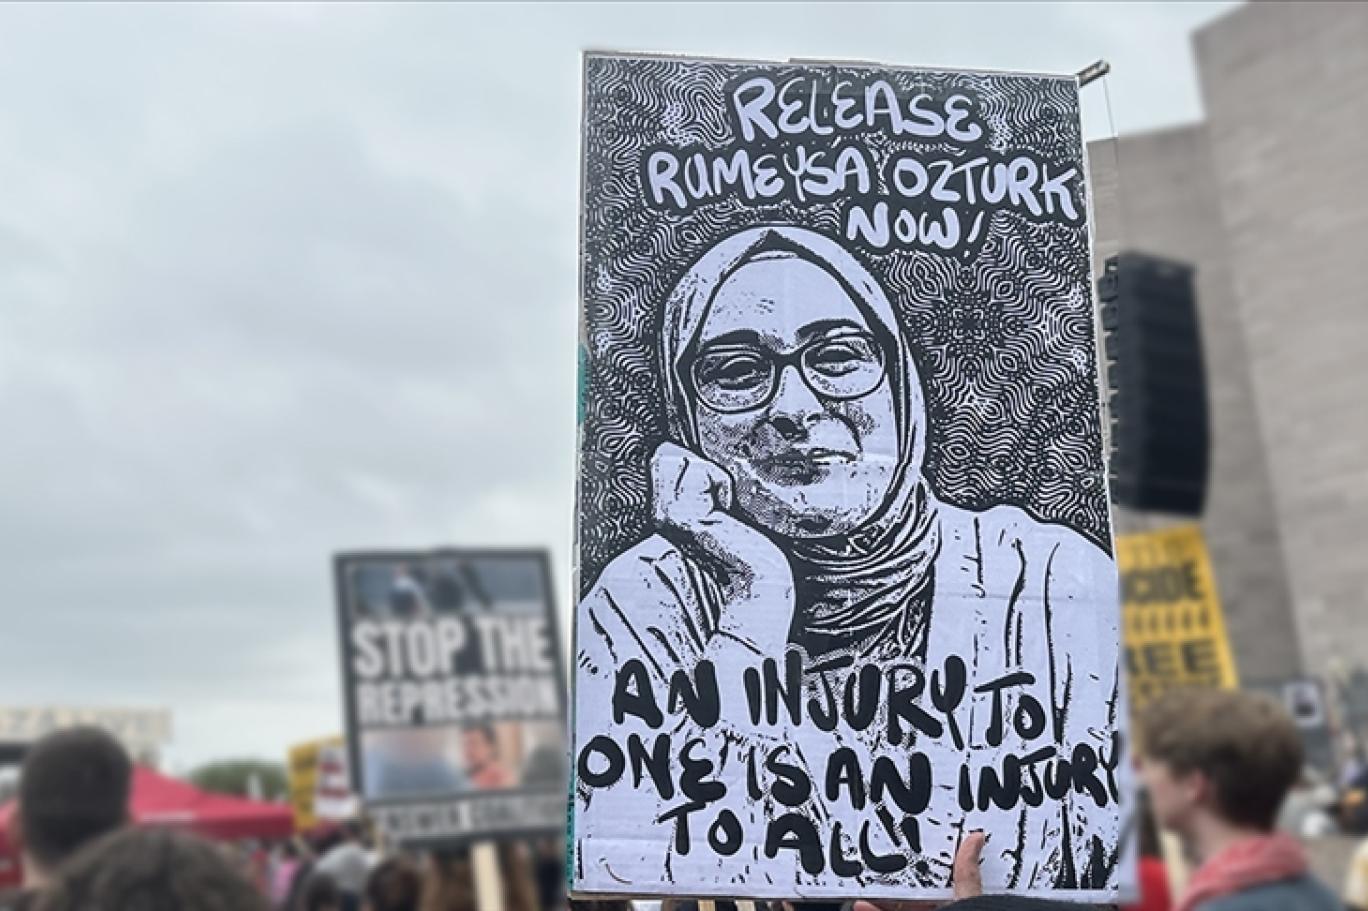 RELEASE
RUMEYSA OZTURK
NOW!
AN INJURY TO
ONE IS AN INJURY
TO ALL!
STOP THE
REPRESSION
ANSWER COALITION
CIDE